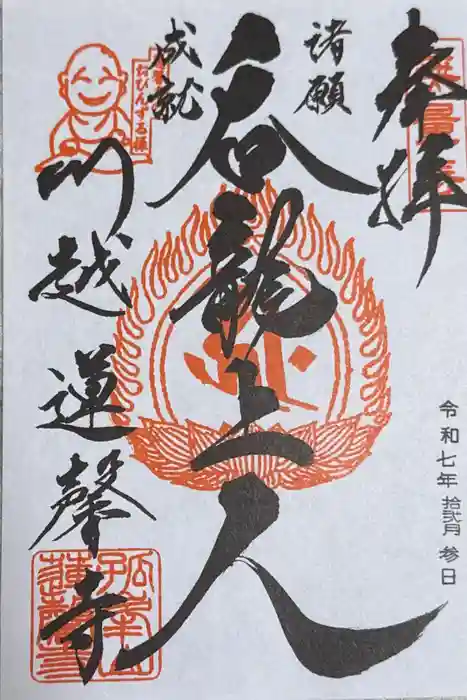 奉拝
諸願
成就
呑龍上人
川越蓮馨寺
おびんずる様
令和七年 拾弐月 参日